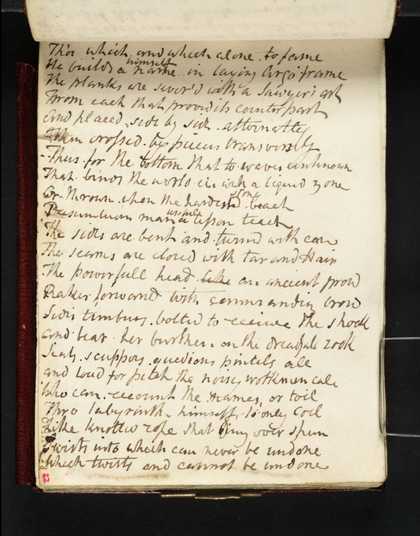 This which and which alone to fame
He builds a himself name in laying Argo frame
The planks are sever'd with a Sawyer's art
From each that proves its counterpart
and placed side by side alternately
Then crossed by pieces transversely
Thus for the bottom that to waves unknown
That binds the world in with a liquid zone
Or thrown when the hardest stony beach
man upon teach
The sides are bent and turnd with care
The seams are closed with tar and Hair
The powerfull head like an ancient prow
Rakes forward with commanding brow
Side timbers bolted to receive the shock
and bear her burthen on the dreadful rock
Scuppers guedions pintels all
and loud for pitch the noisy workman call
Who can recount the names or toil
Thro labyrinth himself coil
Like knotted rope that over spun
Twists into which can never be undone
Which twists and cannot be undone